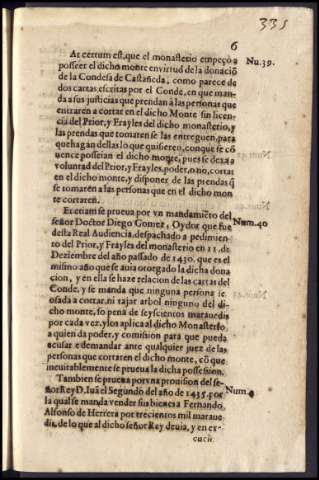 335
6
At certum est, que el monasterio empeçò a
posseer el dicho monte en virtud de la donaciõ
de la Condesa de Castañeda, como parece de
dos cartas escritas por el Conde, en que man-
da a sus justicias que prendan à las personas que
entraren a cortar en el dicho Monte sin licen-
cia del Prior, y Frayles del dicho monasterio, y
las prendas que tomaren se las entreguen, para
que hagan dellas lo que quisieren, con que se cõ
uence posseian el dicho monte, pues se dexa a
voluntad del Prior, y Frayles, poder, o no, cortar
en el dicho monte, y disponer de las prendas q̃
se tomaren a las personas que en el dicho mon
te cortaren.
Nu.39.
Et etiam se prueua por vn mandamiẽto del
señor Doctor Diego Gomez, Oydor que fue
desta Real Audiencia, despachado a pedimien-
to del Prior, y Frayles del monasterio en 11. de
Deziembre del año passado de 1430. que es el
mismo año que se auia otorgado la dicha dona
cion, y en ella se haze relacion de las cartas del
Conde, y se manda que ninguna persona sea
osada a cortar, ni rajar arbol ninguno del di-
cho monte, so pena de seyscientos marauedis
por cada vez, y los aplica al dicho Monasterio,
a quien da poder, y comission para que pueda
acusar e demandar ante qualquier juez de las
personas que cortaren el dicho monte, cõ que
ineuitablemente se prueua la dicha possession.
Num.40
Tambien se prueua por vna prouision del se-
ñor Rey D. Iuã el Segundo del año de 1435. por
la qual se manda vender sus bienes a Fernando
Alfonso de Herrera por trecientos mil maraue
dis, de lo que al dicho señor Rey deuia, y en exe
cucio
Num.4